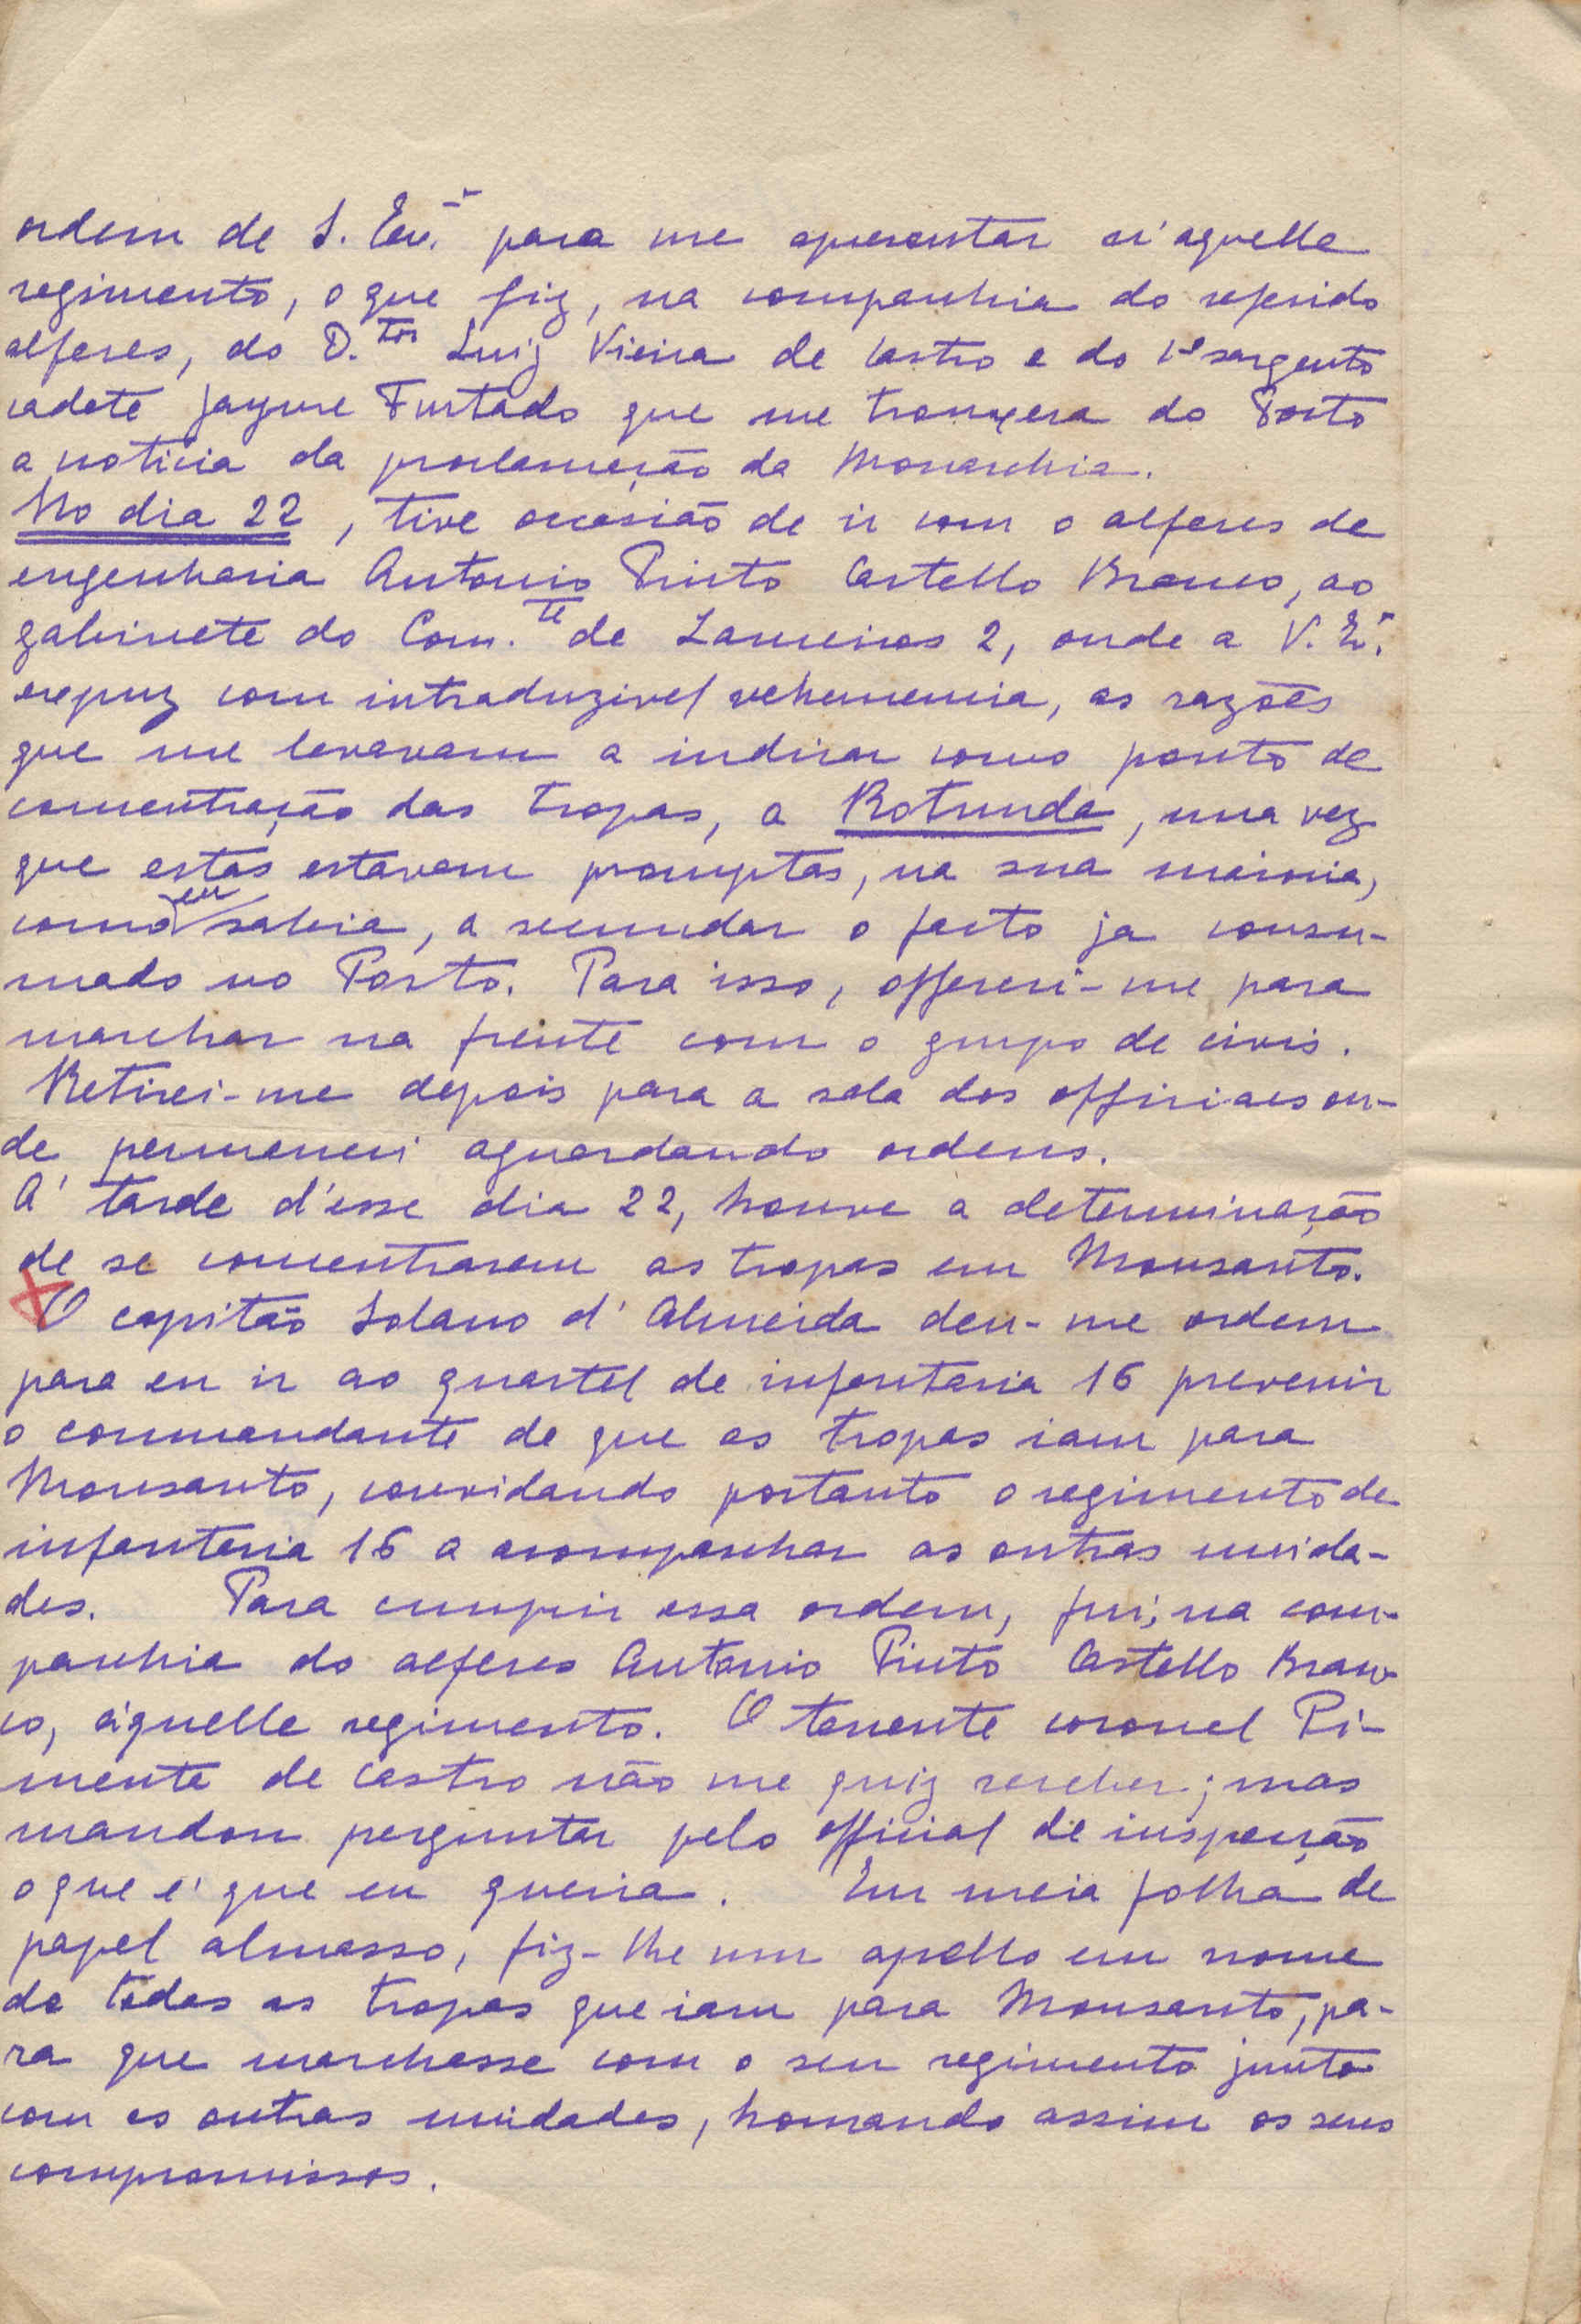 ordem de S. Ex.ª para me apresentar n'aquelle
regimento, o que fiz, na companhia do referido
alferes, do D.tor Luiz Vieira de Castro e do 1º sargento
cadete Jayme Furtado que me trouxera do Porto
a noticia da proclamação da Monarchia.
No dia 22, tive occasião de ir com o alferes de
engenharia Antonio Pinto Castello Branco, ao
gabinete do Com.te de Lanceiros 2, onde a V. Ex.ª
expuz com intraduzivel vehemencia, as razões
que me levavam a indicar como ponto de
concentração das tropas, a Rotunda, uma vez
que estas estavam promptas, na sua maioria,
como eu sabia, a secundar o facto ja consu-
mado no Porto. Para isso, offereci-me para
marchar na frente com o grupo de civis.
Retirei-me depois para a sala dos officiaes on-
de permaneci aguardando ordens.
A' tarde d'esse dia 22, houve a determinação
de se concentrarem as tropas em Monsanto.
O capitão Solano d'Almeida deu-me ordem
para eu ir ao quartel de infantaria 16 prevenir
o commandante de que as tropas iam para
Monsanto, convidando portanto o regimento de
infanteria 16 a acompanhar as outras unida-
des. Para cumprir essa ordem, fui, na com-
panhia do alferes Antonio Pinto Castello Bran-
co, áquelle regimento. O tenente coronel Pi-
menta de Castro não me quiz receber; mas
mandou perguntar pelo official de inspecção
o que é que eu queria. Em meia folha de
papel almasso, fiz-lhe um apello em nome
de todas as tropas que iam para Monsanto, pa-
ra que marchasse com o seu regimento junto
com as outras unidades, honrando assim os seus
compromissos.